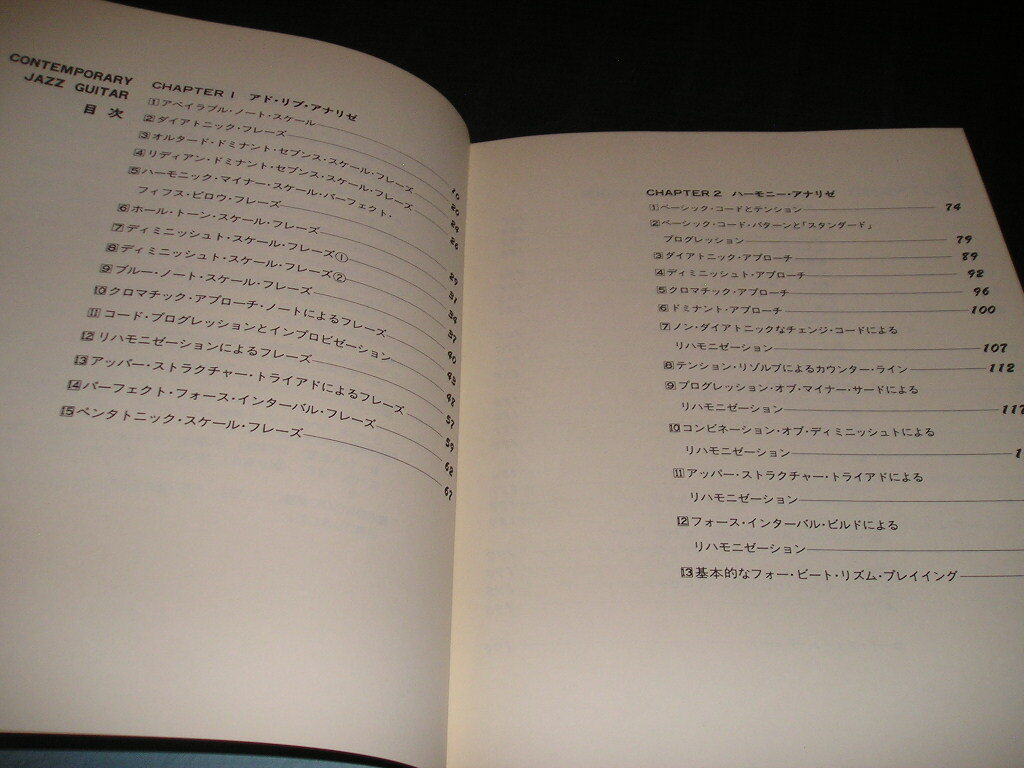 CONTEMPORARY
JAZZ GUITAR
目 次
CHAPTER 1 アド・リブ・アナリゼ
1 アベイラブル・ノート・スケール 10
2 ダイアトニック・フレーズ 20
3 オルタード・ドミナント・セブンス・スケール・フレーズ 24
4 リディアン・ドミナント・セブンス・スケール・フレーズ 26
5 ハーモニック・マイナー・スケール・パーフェクト・
フィフス・ビロウ・フレーズ 29
6 ホール・トーン・スケール・フレーズ 31
7 ディミニッシュト・スケール・フレーズ① 34
8 ディミニッシュト・スケール・フレーズ② 37
9 ブルー・ノート・スケール・フレーズ 40
10 クロマチック・アプローチ・ノートによるフレーズ 43
11 コード・プログレッションとインプロビゼーション 48
12 リハモニゼーションによるフレーズ 57
13 アッパー・ストラクチャー・トライアドによるフレーズ 59
14 パーフェクト・フォース・インターバル・フレーズ 62
15 ペンタトニック・スケール・フレーズ 67
CHAPTER 2 ハーモニー・アナリゼ
1 ベーシック・コードとテンション 74
2 ベーシック・コード・パターンと「スタンダード」
プログレッション 79
3 ダイアトニック・アプローチ 89
4 ディミニッシュト・アプローチ 92
5 クロマチック・アプローチ 96
6 ドミナント・アプローチ 100
7 ノン・ダイアトニックなチェンジ・コードによる
リハモニゼーション 107
8 テンション・リゾルブによるカウンター・ライン 112
9 プログレッション・オブ・マイナー・サードによる
リハモニゼーション 117
10 コンビネーション・オブ・ディミニッシュトによる
リハモニゼーション 1
11 アッパー・ストラクチャー・トライアドによる
リハモニゼーション
12 フォース・インターバル・ビルドによる
リハモニゼーション
13 基本的なフォー・ビート・リズム・プレイイング